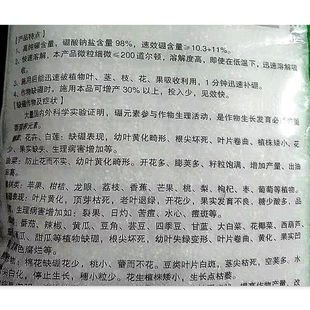 【产品特点】
1、高纯硼含量，硼酸钠盐含量98%，速效硼含量≥10.3+11%。
2、快速溶解，本产品微粒细微≤200道尔顿，溶解度高，即使在低温下，迅速溶解吸收。
3、施用后能迅速被植物叶、茎、枝、花、果吸收利用，1分钟迅速补硼。
4、作物缺硼时，施用本品可增产30%以上，投入少，见效快。
【缺硼作物及症状】
大量国内外科学实验证明，硼元素参与作物生活活动，是作物生长发育必
需要的元素。
花卉、白莲：缺硼表现，幼叶黄化畸形、根尖坏死、叶片卷曲、植株矮小、
果实缺失、生理病害增加等。
防止花而不实、幼叶黄化畸形。开花多、膨荚多、籽粒饱满、增加产量、出油
苹果、柑桔、龙眼、荔枝、香蕉、芒果、桃、梨、枸杞、枣、葡萄等植物，
叶片黄化，顶梢枯死，老叶退绿，开花少，果实发育不良，糖少酸多，品
生理病害增加如：裂果、日灼、苦痘、水心、痘斑等。
番茄、辣椒、黄瓜、豆角、芸豆、四季豆、甘蓝、大白菜、花椰菜、西葫芦、
瓜、甜瓜等植物缺硼，根尖坏死，幼叶失绿变形、叶片卷曲、黄化，果实凹
色腐烂等。
棉花缺硼花少，桃小、蕾而不花。豆类叶片白斑，茎尖枯死，空荚多，水
白化，停止生长，穗小粒少。花生植株矮小，生长点枯萎。